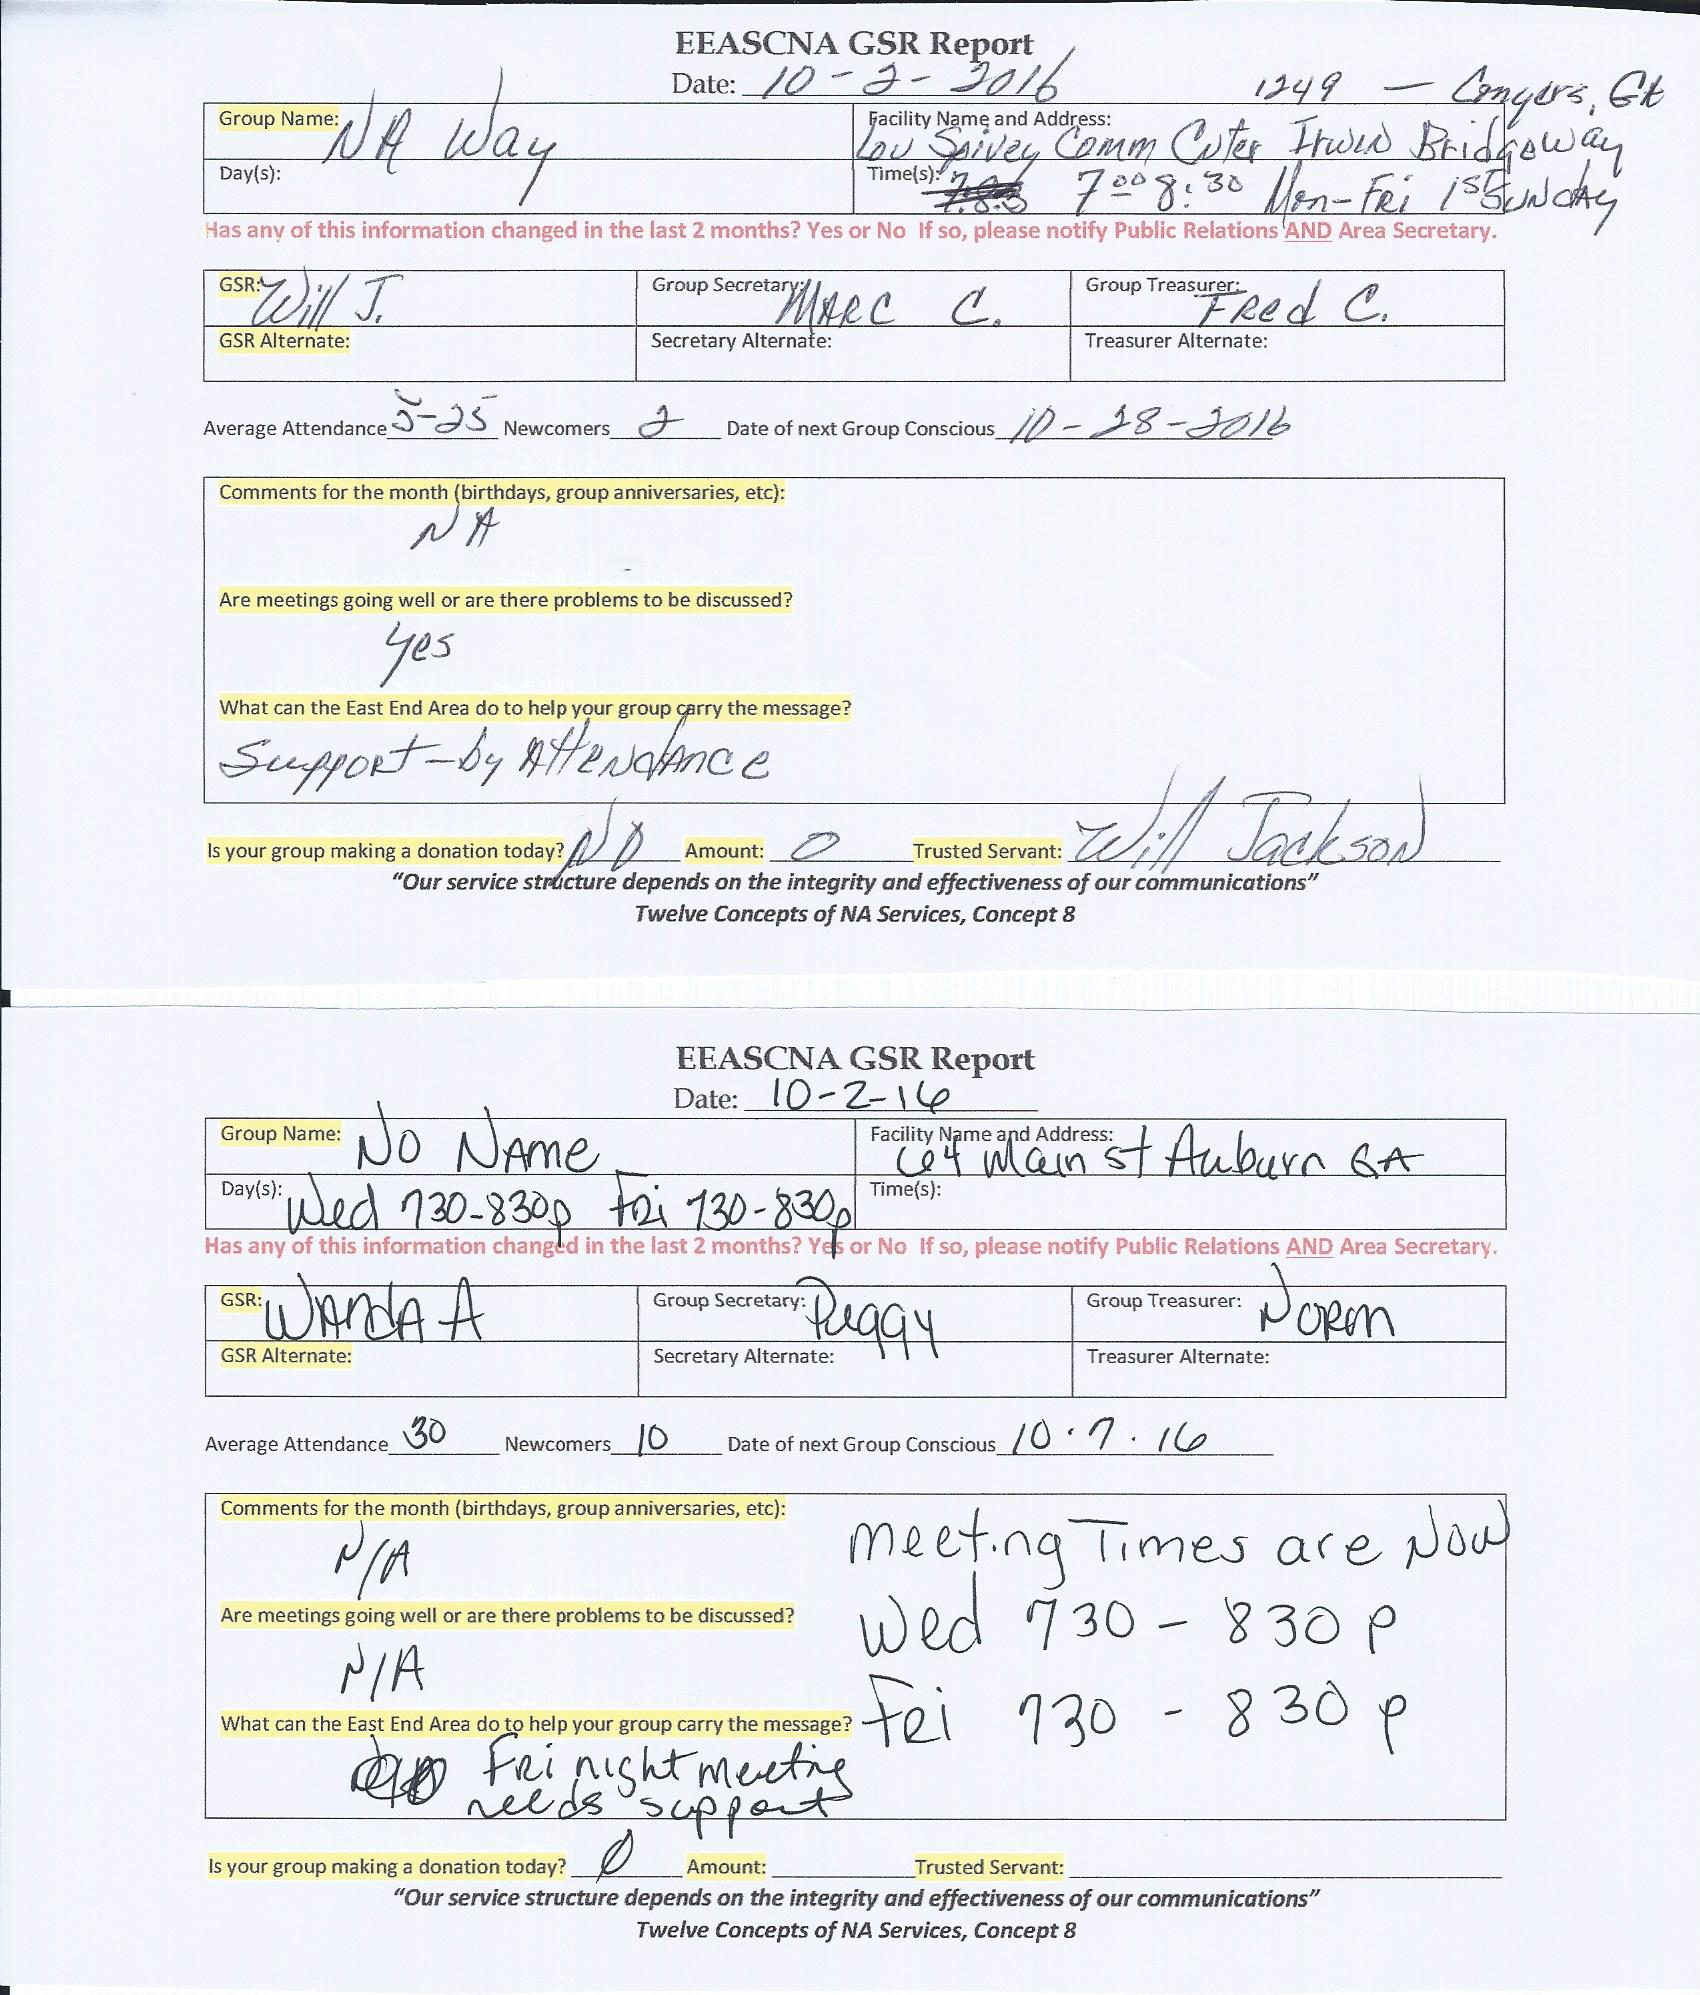 EEASCNA GSR Report
Date: 10-2-2016
1249 — Conyers, GA
Group Name: NA Way
Facility Name and Address:
Lou Spivey Comm Cnter Irwin Bridgeway
Day(s):
Time(s): 7:00 8:30 Mon-Fri 1st Sunday
Has any of this information changed in the last 2 months? Yes or No If so, please notify Public Relations AND Area Secretary.
GSR: Will J. Group Secretary: MARC C. Group Treasurer: FRed C.
GSR Alternate: Secretary Alternate: Treasurer Alternate:
Average Attendance 5-25 Newcomers 2 Date of next Group Conscious 10-28-2016
Comments for the month (birthdays, group anniversaries, etc):
NA
Are meetings going well or are there problems to be discussed?
yes
What can the East End Area do to help your group carry the message?
Support-by Attendance
Is your group making a donation today? NO Amount: 0 Trusted Servant: Will Jackson
“Our service structure depends on the integrity and effectiveness of our communications”
Twelve Concepts of NA Services, Concept 8
EEASCNA GSR Report
Date: 10-2-16
Group Name: No Name
Facility Name and Address:
64 Main st Auburn GA
Day(s): Wed 730-830p Fri 730-830p
Time(s):
Has any of this information changed in the last 2 months? Yes or No If so, please notify Public Relations AND Area Secretary.
GSR: WANDA A Group Secretary: Peggy Group Treasurer: Norm
GSR Alternate: Secretary Alternate: Treasurer Alternate:
Average Attendance 30 Newcomers 10 Date of next Group Conscious 10.7.16
Comments for the month (birthdays, group anniversaries, etc):
N/A
Are meetings going well or are there problems to be discussed?
N/A
What can the East End Area do to help your group carry the message?
Fri night meeting
needs support
meeting Times are Now
Wed 730 - 830 p
Fri 730 - 830 p
Is your group making a donation today? 0 Amount: Trusted Servant:
“Our service structure depends on the integrity and effectiveness of our communications”
Twelve Concepts of NA Services, Concept 8